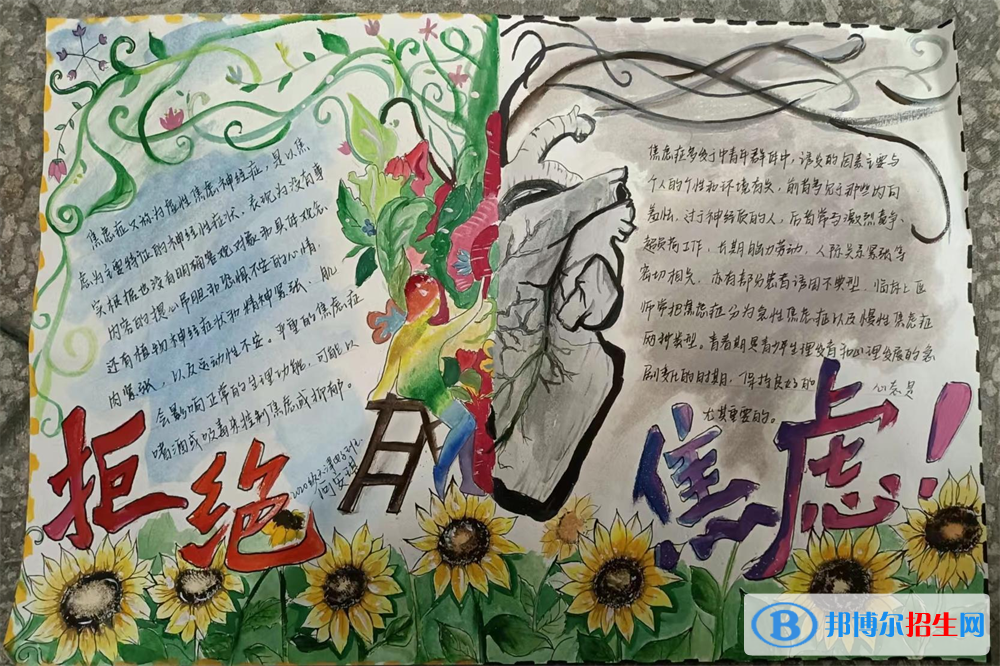 焦虑症又称为焦虑性神经症，是以焦
虑为主要特征的神经性症状，表现为没有事
实根据也没有明确客观对象和具体观念
内容的提心吊胆和恐惧不安的心情，
还有植物神经症状和精神紧张、肌
肉紧张，以及运动性不安。严重的焦虑症
会影响正常的生理功能，可能以
嗜酒或吸毒来控制焦虑或抑郁。
焦虑症多发于中青年群体中，诱发的因素主要与
个人的个性和环境有关，前者多见于那些内向
羞怯、过于神经质的人，后者常与激烈竞争、
超负荷工作、长期脑力劳动、人际关系紧张等
密切相关，亦有部分患者诱因不典型。临床上医
师常把焦虑症分为急性焦虑症以及慢性焦虑症
两种类型。青春期是青少年生理发育和心理发展的急
剧变化的时期，保持良好的 心态是
尤其重要的。
拒绝
焦虑！
B 邦博尔招生网